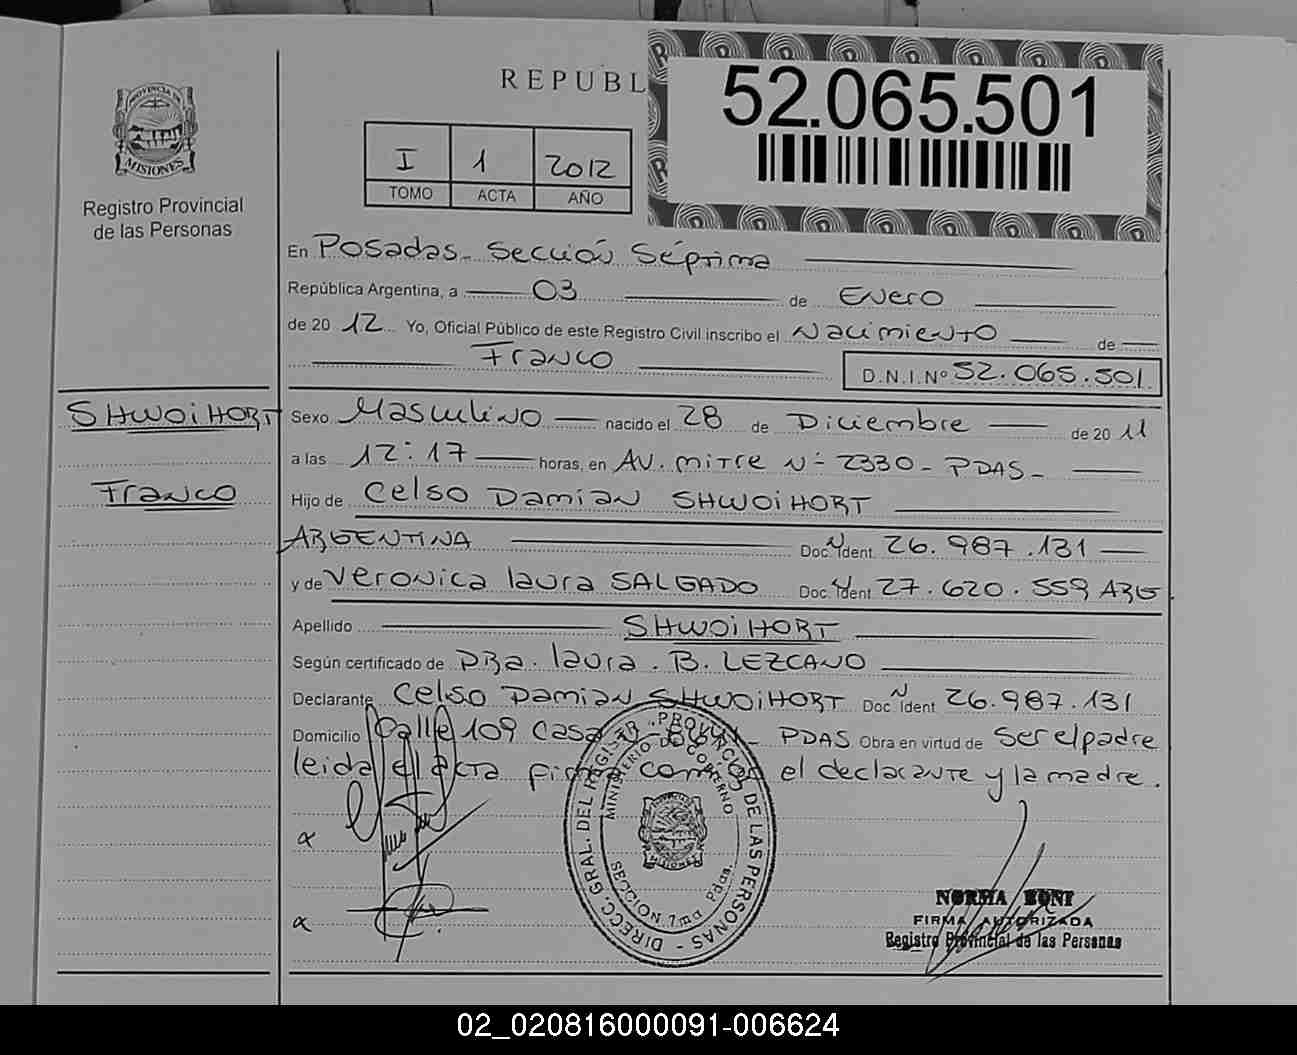 REPUBL
52.065.501
PROVINCIA DE
MISIONES
I 1 2012
TOMO ACTA AÑO
Registro Provincial
de las Personas
En Posadas - Sección Séptima
República Argentina, a 03 de Enero
de 20 12 Yo, Oficial Público de este Registro Civil inscribo el Nacimiento de
Franco
D.N.I.Nº 52.065.501
SHWOiHORT
Franco
Sexo Masculino nacido el 28 de Diciembre de 20 11
a las 12:17 horas, en AV. mitre Nº 2330 - PDAS -
Hijo de Celso Damian SHWOiHORT
ARGENTINA Doc. Ident. 26.987.131
y de Veronica laura SALGADO Doc. Ident 27.620.559 ARG
Apellido SHWOiHORT
Según certificado de DRa. laura. B. LEZCANO
Declarante Celso Damian SHWOiHORT Doc Ident 26.987.131
Domicilio Calle 109 Casa PDAS Obra en virtud de ser el padre
leida el acta firma conmigo el declarante y la madre.
DIRECC. GRAL. DEL REGISTR. PROVINCIAL DE LAS PERSONAS
MINISTERIO DE GOBIERNO
SECCION 7ma Pdas.
MISIONES
NORMA BONI
FIRMA AUTORIZADA
Registro Provincial de las Personas
02_020816000091-006624